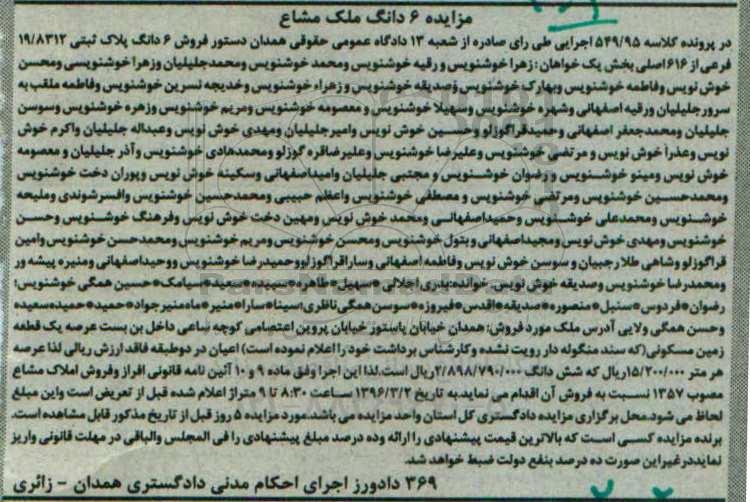 مزایده ۶ دانگ ملک مشاع
در پرونده کلاسه ۵۴۹/۹۵ اجرایی طی رای صادره از شعبه ۱۳ دادگاه عمومی حقوقی همدان دستور فروش ۶ دانگ پلاک ثبتی ۱۹/۸۳۱۲
فرعی از ۶۱۶ اصلی بخش یک خواهان : زهرا خوشنویس و رقیه خوشنویس ومحمد خوشنویس ومحمدجلیلیان وزهرا خوشنویسی ومحسن
خوش نویس وفاطمه خوشنویس وبهارک خوشنویس وصدیقه خوشنویس و زهراء خوشنویس وخدیجه نسرین خوشنویس وفاطمه ملقب به
سرور جلیلیان ورقیه اصفهانی وشهره خوشنویس وسهیلا خوشنویس و معصومه خوشنویس ومریم خوشنویس وزهره خوشنویس وسوسن
جلیلیان ومحمدجعفر اصفهانی وحمیدقراگوزلو وحسین خوش نویس وامیرجلیلیان ومهدی خوش نویس وعبداله جلیلیان واکرم خوش
نویس وعذرا خوش نویس و مرتضی خوشنویس وعلیرضا خوشنویس وعلیرضاقره گوزلو ومحمدهادی خوشنویس وآذر جلیلیان و معصومه
خوش نویس ومینو خوشنویس و رضوان خوشنویس و مجتبی جلیلیان وامیداصفهانی وسکینه خوش نویس وپوران دخت خوشنویس
ومحمدحسین خوشنویس ومرتضی خوشنویس و مصطفی خوشنویس واعظم حبیبی ومحمدحسین خوشنویس وافسرشوندی وملیحه
خوشنویس ومحمدعلی خوشنویس وحمیداصفهانی ومحمد خوش نویس ومهین دخت خوش نویس وفرهنگ خوشنویس وحسن
خوشنویس ومهدی خوش نویس ومجیداصفهانی وبتول خوشنویس ومحسن خوشنویس ومریم خوشنویس ومحمدحسن خوشنویس وامین
قراگوزلو وشاهی طلا رجبیان و سوسن خوش نویس وفاطمه اصفهانی وسارا قراگوزلو وحمیدرضا خوشنویس ووحیداصفهانی ومنیره پیشه ور
ومحمدرضا خوشنویس وصدیقه خوش نویس. خوانده: بدری اجلالی * سهیل * طاهره * حمیده * سعیده * سیامک * حسین همگی خوشنویس؛
رضوان * فردوس * سنبل * منصوره * صدیقه * اقدس * فیروزه * سوسن همگی ناظری؛ سینا * سارا * منیر * ماه منیر جواد * حمید * حمیده سعیده
وحسن همگی ولایی آدرس ملک مورد فروش: همدان خیابان پاستور خیابان پروین اعتصامی کوچه ساعی داخل بن بست عرصه یک قطعه
زمین مسکونی(که سند منگوله دار رویت نشده وکارشناس برداشت خود را اعلام نموده است) اعیان در دوطبقه فاقد ارزش ریالی لذا عرصه
هر متر ۱۵/۲۰۰/۰۰۰ریال که شش دانگ ۲/۸۹۸/۷۹۰/۰۰۰ریال است.لذا این اجرا وفق ماده ۹ و ۱۰ آئین نامه قانونی افراز وفروش املاک مشاع
مصوب ۱۳۵۷ نسبت به فروش آن اقدام می نماید.به تاریخ ۱۳۹۶/۳/۲ ساعت ۸:۳۰ تا ۹ متراژ اعلام شده قبل از تعریض است واین مبلغ
لحاظ می شود.محل برگزاری مزایده دادگستری کل استان واحد مزایده می باشد.مورد مزایده ۵ روز قبل از تاریخ مذکور قابل مشاهده است.
برنده مزایده کسی است که بالاترین قیمت پیشنهادی را ارائه وده درصد مبلغ پیشنهادی را فی المجلس والباقی در مهلت قانونی واریز
نماید درغیر این صورت ده درصد بنفع دولت ضبط خواهد شد.
۳۶۹ دادورز اجرای احکام مدنی دادگستری همدان - زائری